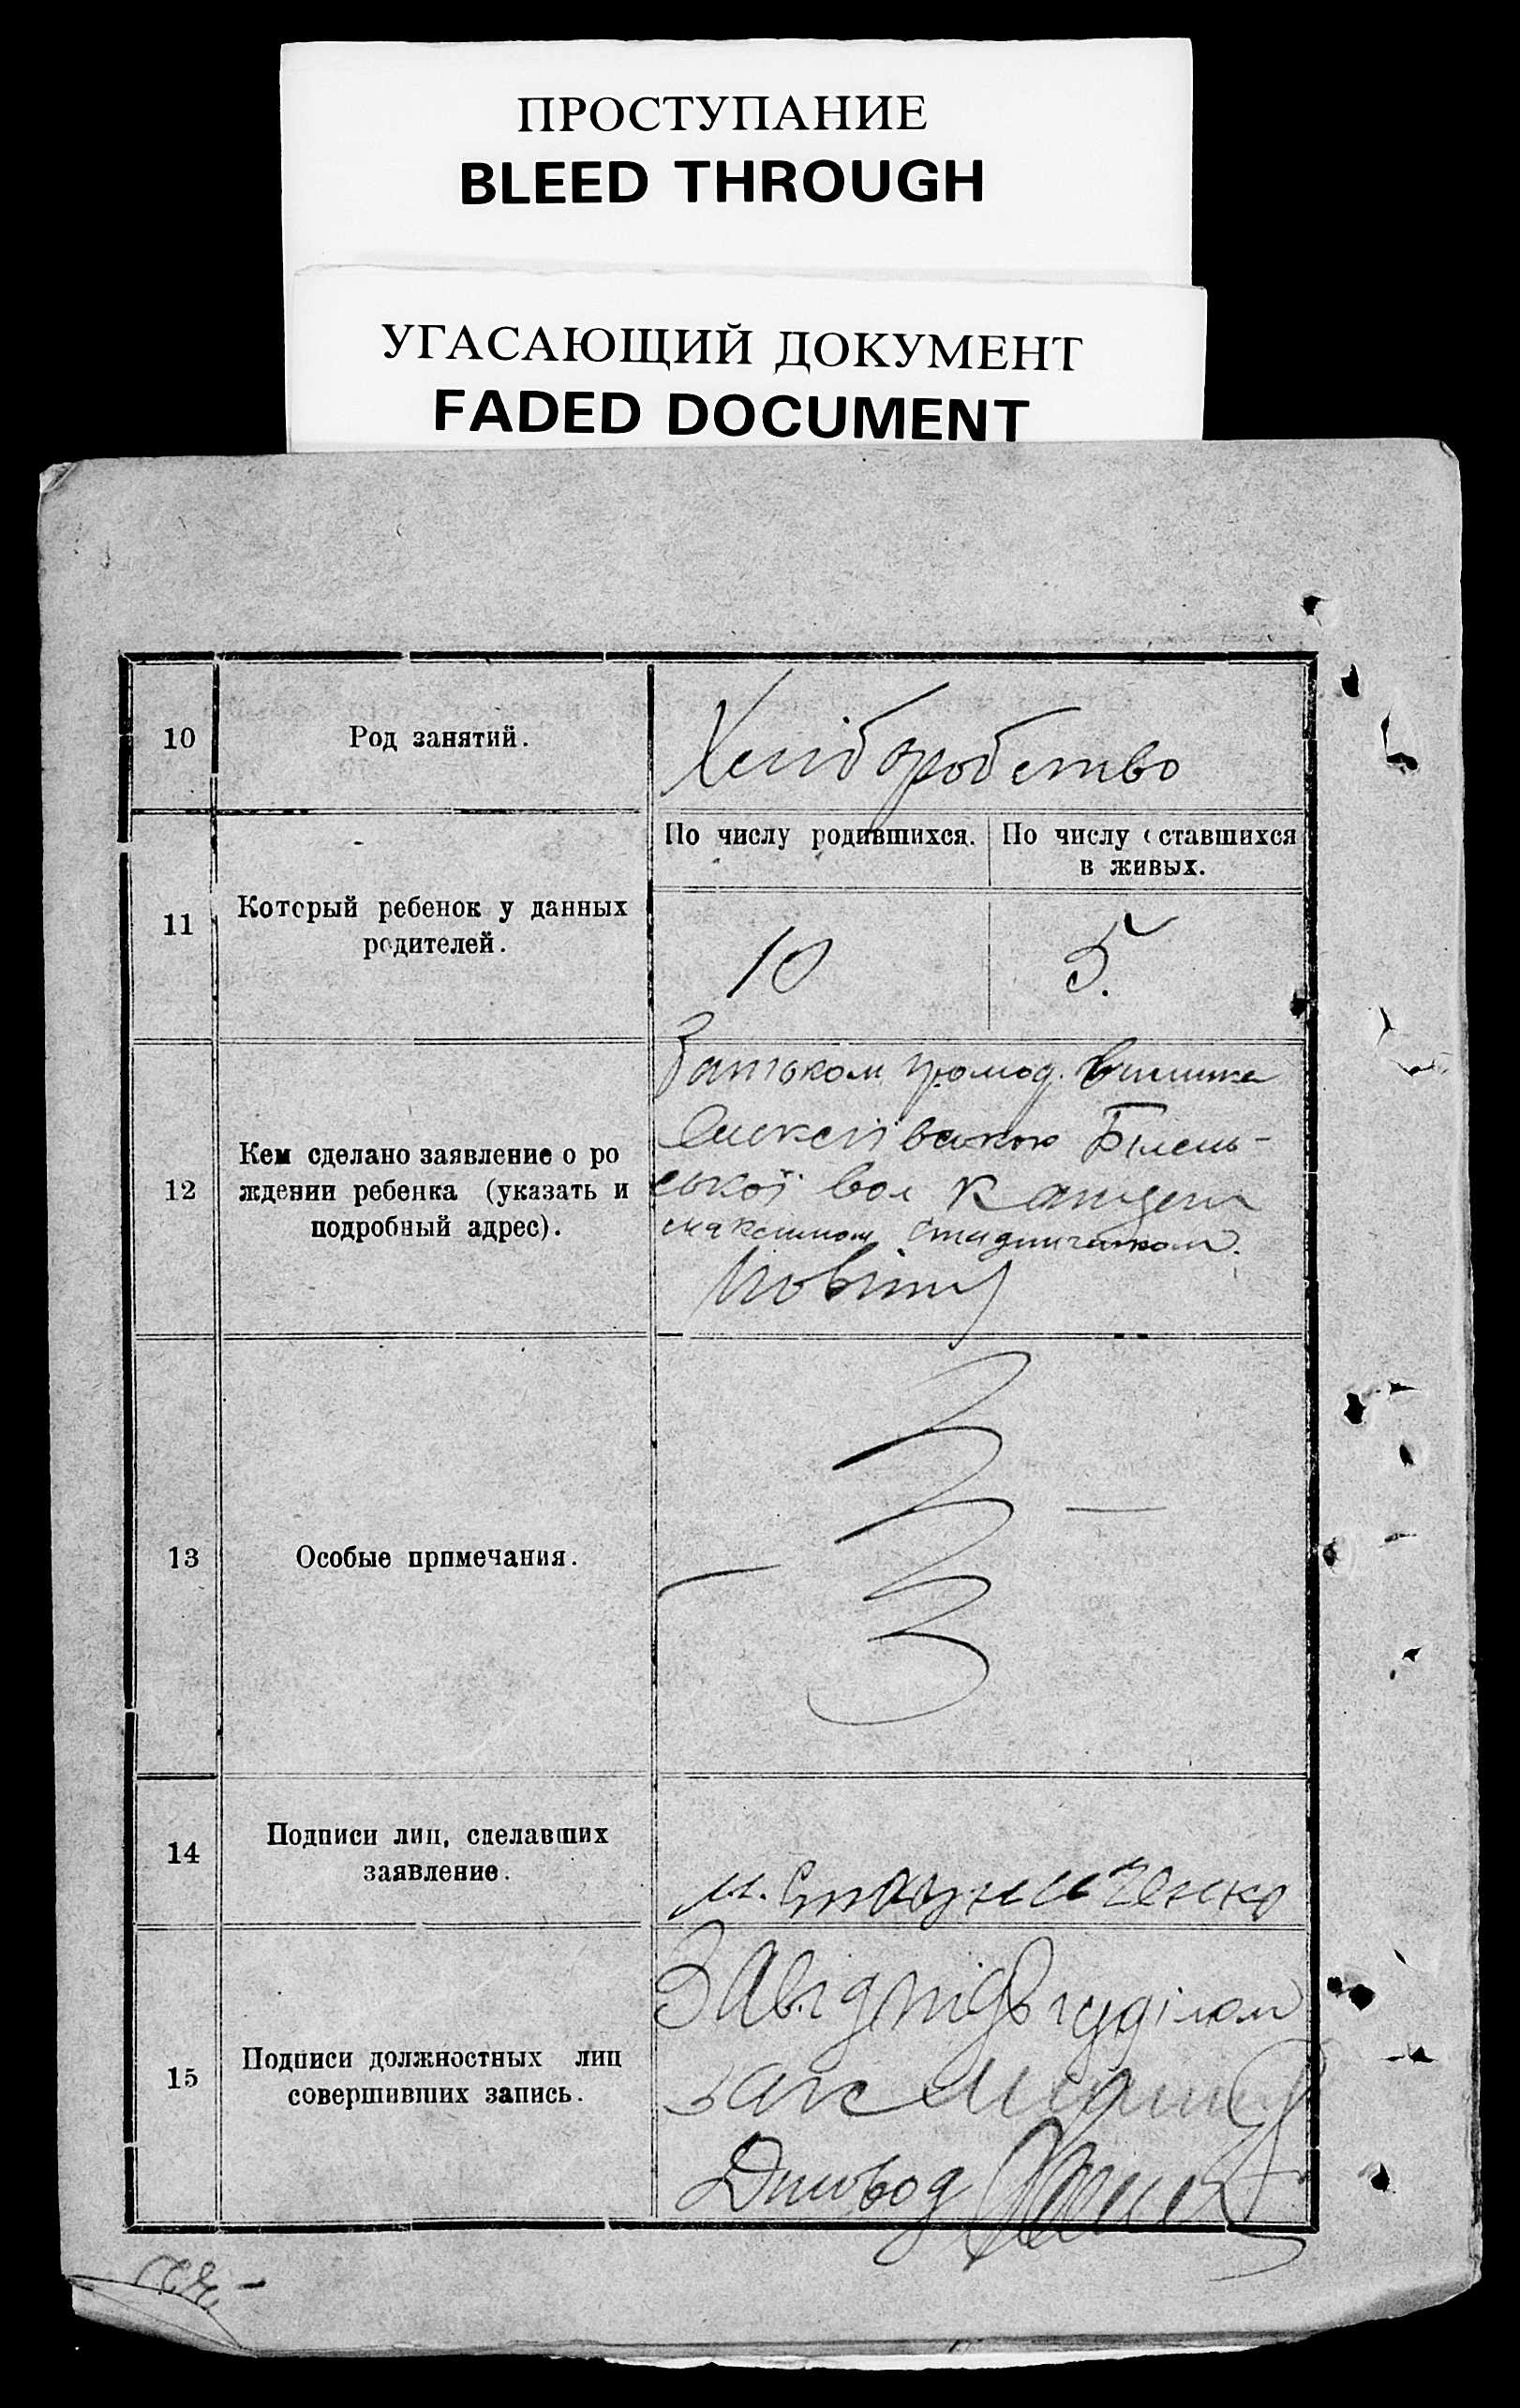 ПРОСТУПАНИЕ
BLEED THROUGH
УГАСАЮЩИЙ ДОКУМЕНТ
FADED DOCUMENT
10
Род занятий.
Хлібробство
11
Который ребенок у данных
родителей.
По числу родившихся.
По числу оставшихся
в живых.
10
5.
12
Кем сделано заявление о ро
ждении ребенка (указать и
подробный адрес).
Батьком громод.
Білень-
ської вол
Максимом Стадниченком.
13
Особые примечания.
14
Подписи лиц, сделавших
заявление.
М. Стадниченко
15
Подписи должностных лиц
совершивших запись.
Завід
Загс
Діловод